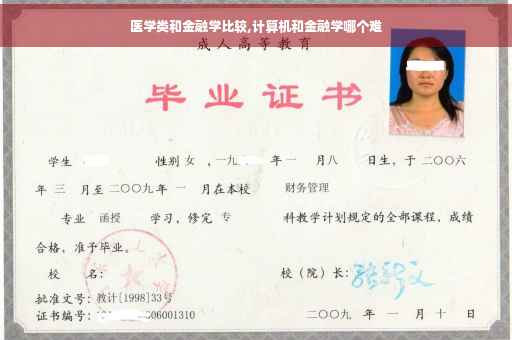 医学类和金融学比较,计算机和金融学哪个难
成人高等教育
毕业证书
学生 性别 女 ,一九 年 一 月八 日生，于 二〇〇六
年 三 月至 二〇〇九 年 一 月在本校 财务管理
专业 函授 学习，修完 专 科教学计划规定的全部课程，成绩
合格，准予毕业。
校 名： 校（院）长：
批准文号：教计[1998]33号
证书编号：1 006001310 二〇〇九 年 一 月 十 日